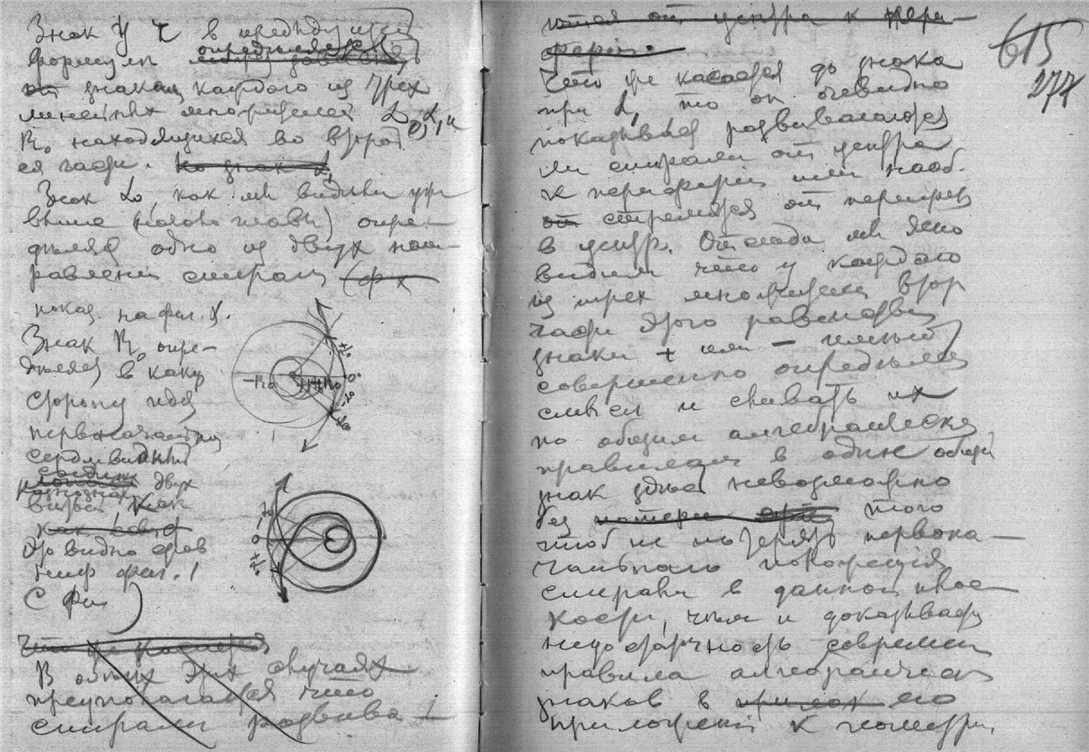 Знак У Ч в предъидущей
формулы определяется
знаками каждого из трех
линейных множителей
R₀ находящихся во второй
ея части. но знак
Знак L₀, как мы видили уже
выше (начало главы) опре-
деляет одно из двух нап-
равлений спирали
показ. на фиг.
Знак R₀ опре-
деляет в какую
сторону идет
первоначальный
сердцевидный
двух
витков как
это видно срав
нив фиг. 1
с фиг
-R₀ +R₀ 0
0
Что же касается
В обоих этих случаях
предполагается что
спирали развива
ются от центра к пери-
ферии.
615
277
Что же касается до знака
при L₁ то он очевидно
показывает развиваются
ли спирали от центра
к периферии или нааб.
стремятся от периферии
в центр. Отсюда мы ясно
видим что у каждого
из трех множителей втор
части этого равенства
знаки + или - имеют
совершенно определен
смысл и сливать их
по общим алгебраическим
правилам в один общий
знак здесь невозможно
без потери того
чтоб не потерять первона-
чального
спирали в данной плос
кости, чем и доказывает
недостаточность современ
правила алгебраическ
знаков в его
приложении к геометрии